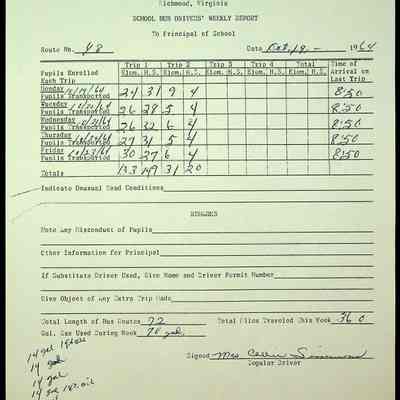 Richmond, Virginia
SCHOOL BUS DRIVERS' WEEKLY REPORT
To Principal of School
Route No. 48 Date Oct. 19 - 1964
Trip 1 Trip 2 Trip 3 Trip 4 Total Time of
Pupils Enrolled Elem. H.S. Elem. H.S. Elem. H.S. Elem. H.S. Elem. H.S. Arrival on
Each Trip Last Trip
Monday 10/19/64
Pupils Transported 24 31 9 4 8:50
Tuesday 10/20/64
Pupils Transported 26 28 5 4 8:50
Wednesday 10/21/64
Pupils Transported 26 32 6 4 8:50
Thursday 10/22/64
Pupils Transported 27 31 5 4 8:50
Friday 10/23/64
Pupils Transported 30 27 6 4 8:50
Totals 133 149 31 20
Indicate Unusual Road Conditions
REMARKS
Note Any Misconduct of Pupils
Other Information for Principal
If Substitute Driver Used, Give Name and Driver Permit Number
Give Object of Any Extra Trip Made
Total Length of Bus Routes 72 Total Miles Traveled This Week 360
Gal. Gas Used During Week 70 gal.
Signed Mrs.
Regular Driver
14 gal
14 gal
14 gal
14 gal 1 qt. oil